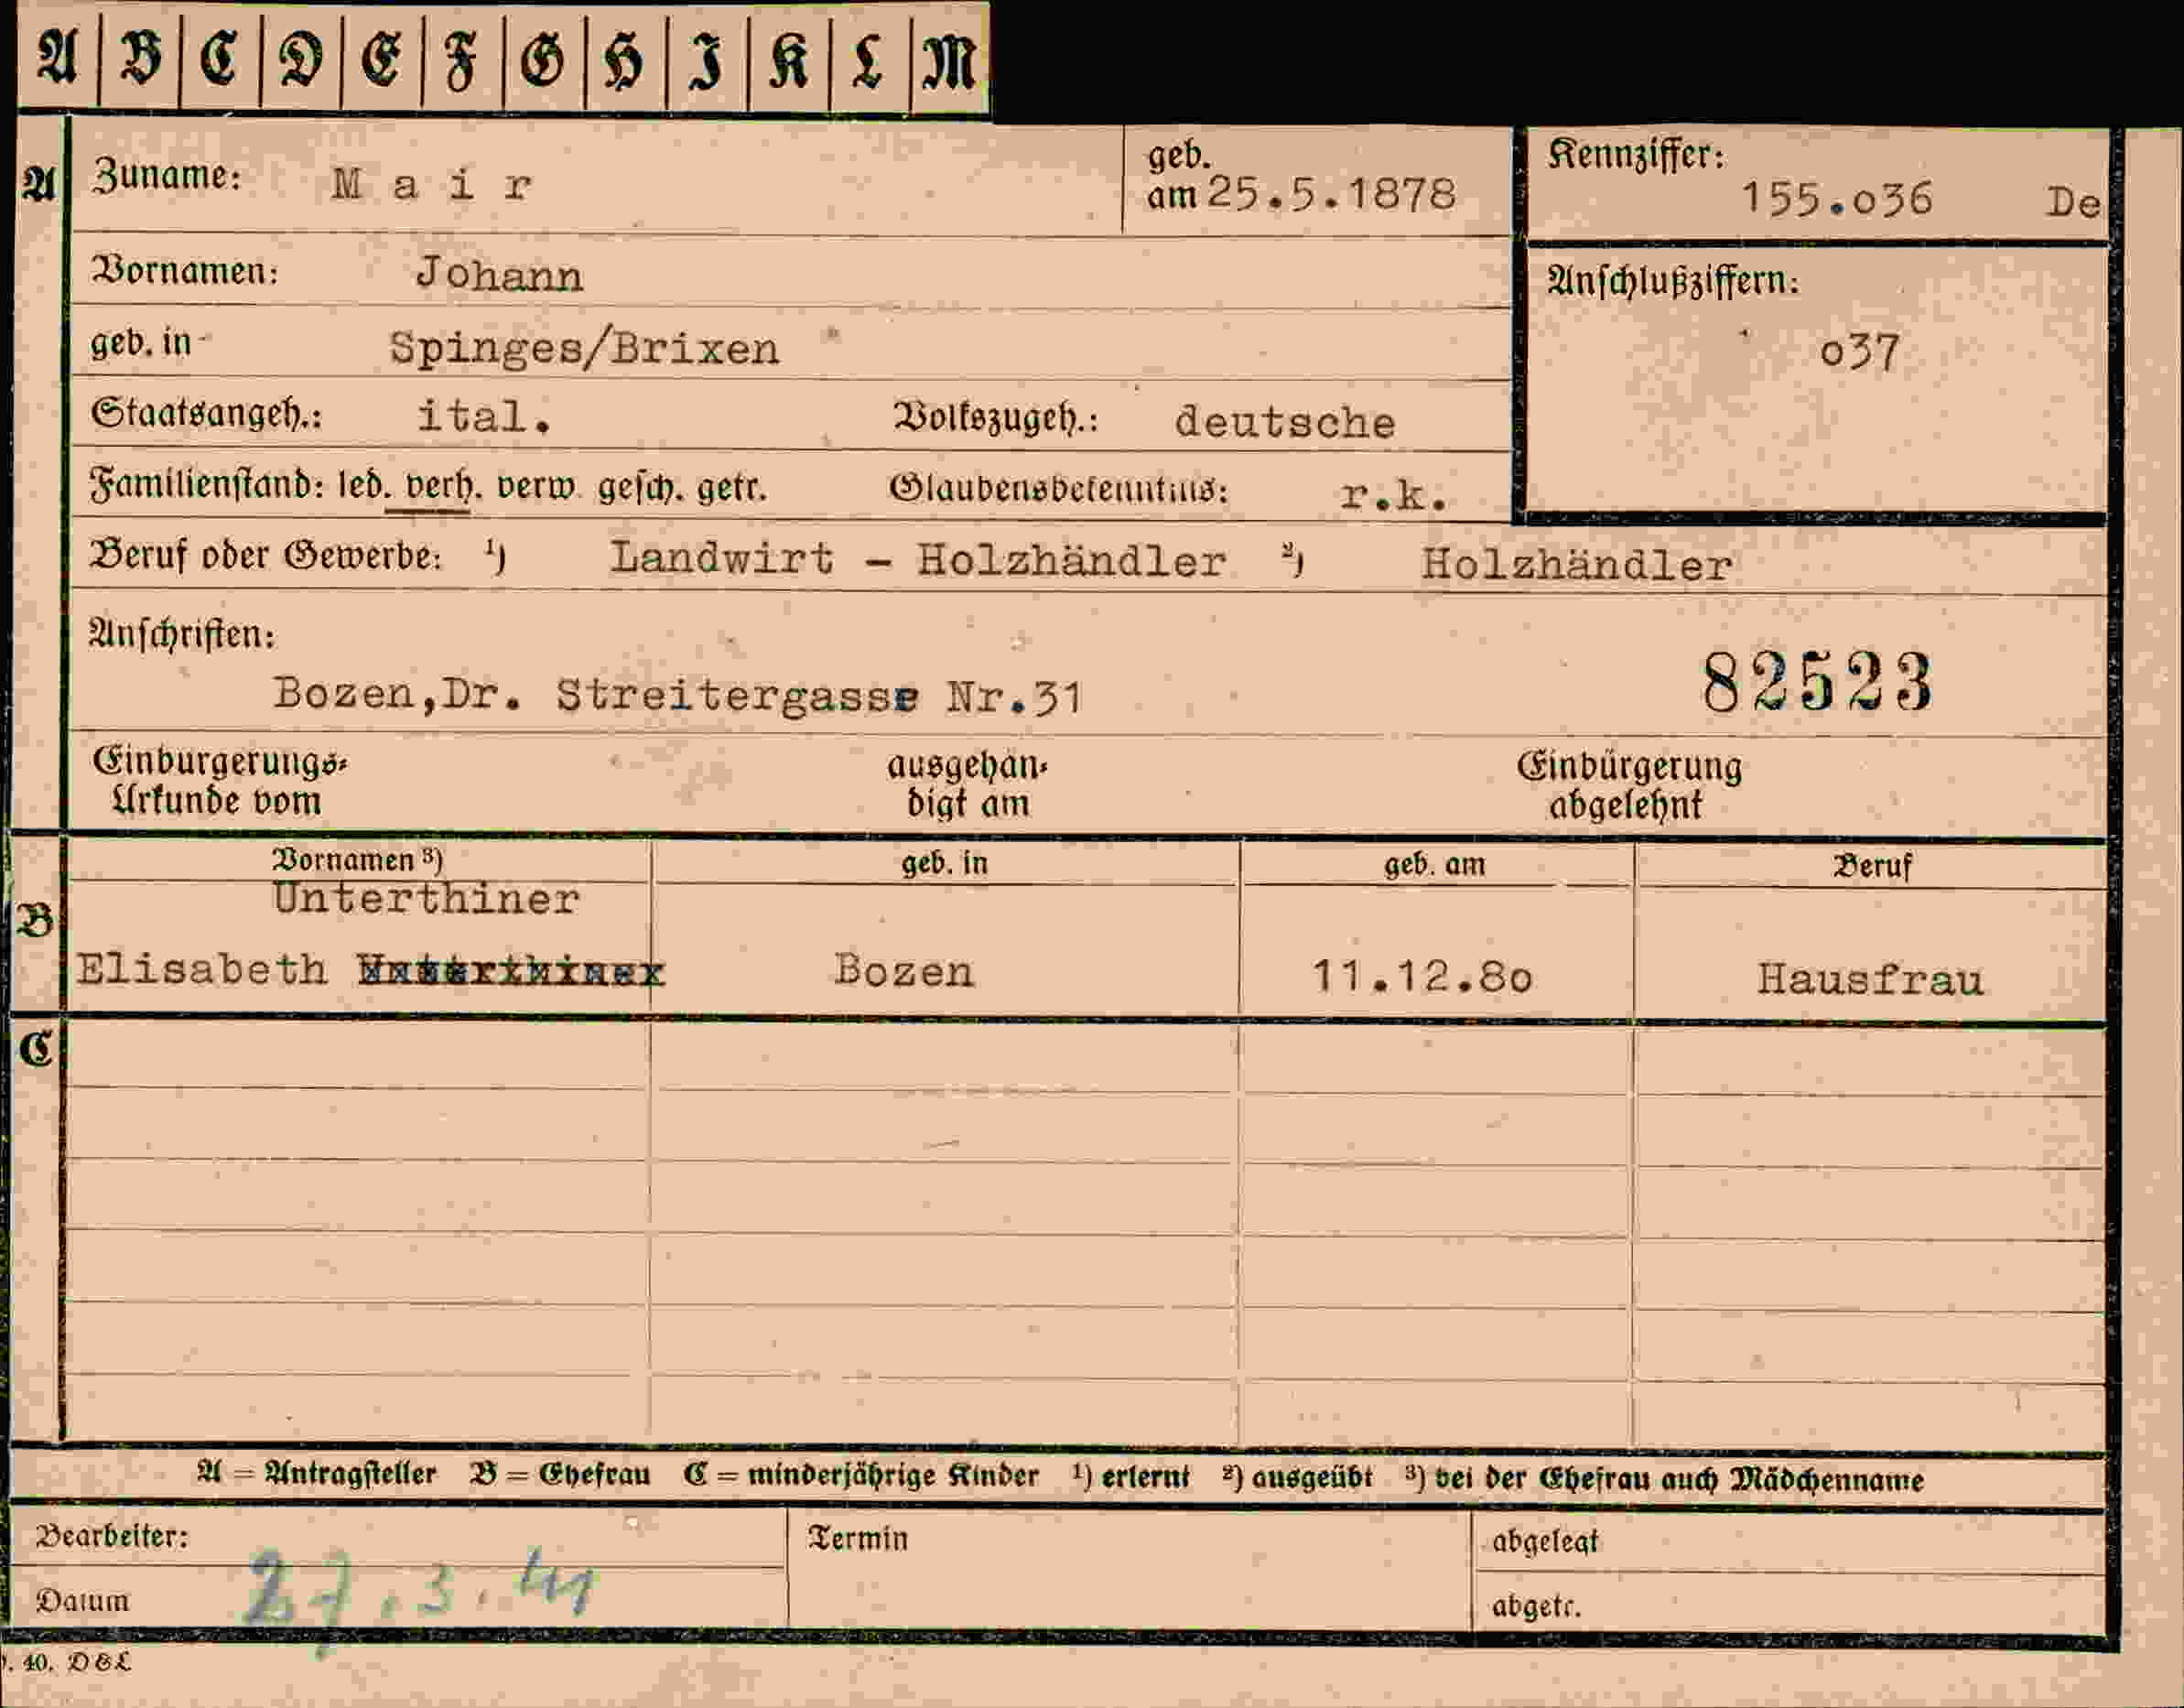 A B C D E F G H I K L M
A Zuname: Mair geb. am 25.5.1878
Kennziffer: 155.o36 De
Vornamen: Johann
Anschlußziffern: o37
geb. in Spinges/Brixen
Staatsangeh.: ital. Volkszugeh.: deutsche
Familienstand: led. verh. verw. gesch. getr. Glaubensbekenntnis: r.k.
Beruf oder Gewerbe: ¹) Landwirt - Holzhändler ²) Holzhändler
Anschriften:
Bozen,Dr. Streitergasse Nr.31 82523
Einbürgerungs-
Urkunde vom
ausgehän-
digt am
Einbürgerung
abgelehnt
B Vornamen ³) geb. in geb. am Beruf
Unterthiner
Elisabeth Unterthiner Bozen 11.12.8o Hausfrau
C
A = Antragsteller B = Ehefrau C = minderjährige Kinder ¹) erlernt ²) ausgeübt ³) bei der Ehefrau auch Mädchenname
Bearbeiter: Termin abgelegt
Datum 27.3.41 abgetr.
. 40. D&L